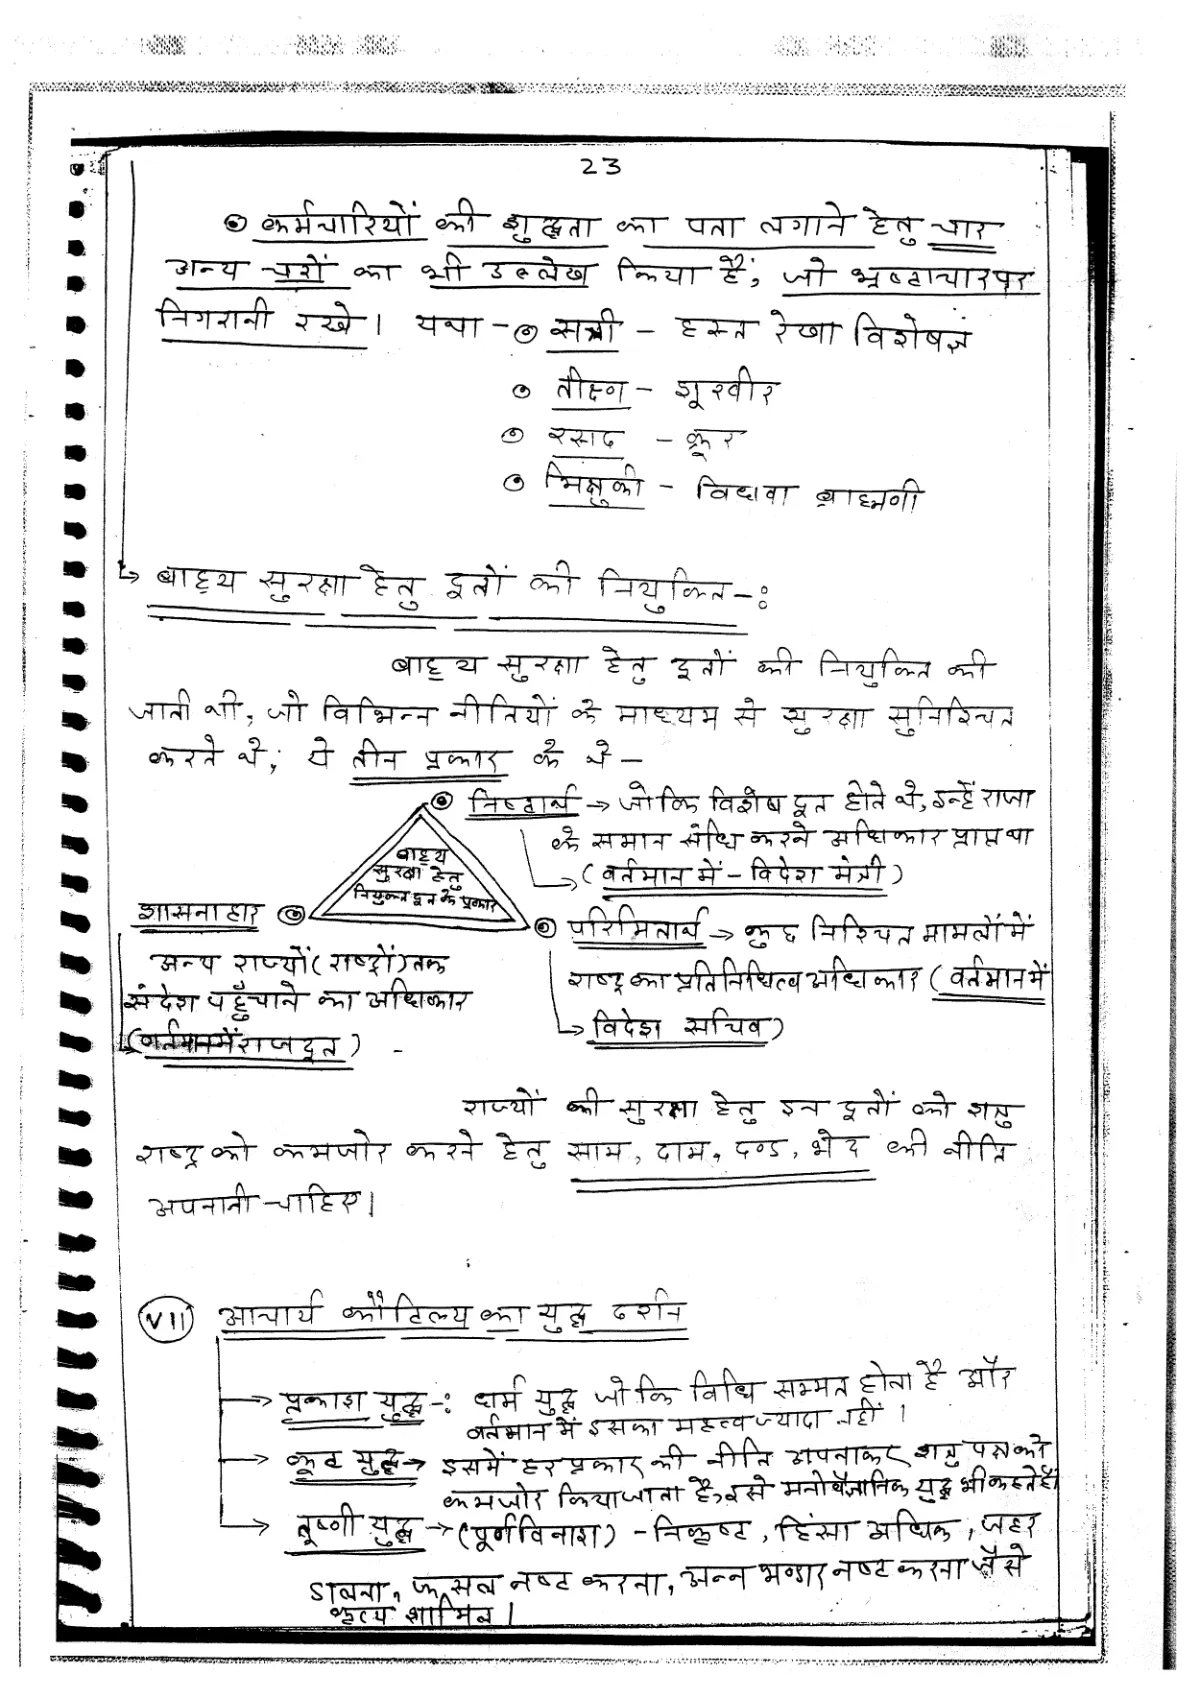 23
कर्मचारियों की शुद्धता का पता लगाने हेतु चार
अन्य चरों का भी उल्लेख किया है; जो भ्रष्टाचार पर
निगरानी रखे। यथा - सत्री - हस्त रेखा विशेषज्ञ
तीक्ष्ण - शूरवीर
रसद - क्रूर
भिक्षुकी - विधवा ब्राह्मणी
बाह्य सुरक्षा हेतु दूतों की नियुक्ति -:
बाह्य सुरक्षा हेतु दूतों की नियुक्ति की
जाती थी, जो विभिन्न नीतियों के माध्यम से सुरक्षा सुनिश्चित
करते थे; ये तीन प्रकार के थे -
निष्टार्थ → जोकि विशेष दूत होते थे, इन्हें राजा
के समान संधि करने अधिकार प्राप्त था
(वर्तमान में - विदेश मंत्री)
बाह्य
सुरक्षा हेतु
नियुक्त दूत के प्रकार
शासनाहार
अन्य राज्यों (राष्ट्रों) तक
संदेश पहुँचाने का अधिकार
(वर्तमान में राजदूत)
परिमितार्थ → कुछ निश्चित मामलों में
राष्ट्र का प्रतिनिधित्व अधिकार (वर्तमान में
विदेश सचिव)
राज्यों की सुरक्षा हेतु इन दूतों को शत्रु
राष्ट्र को कमजोर करने हेतु साम, दाम, दण्ड, भेद की नीति
अपनानी चाहिए।
VII आचार्य कौटिल्य का युद्ध दर्शन
→ प्रकाश युद्ध -: धर्म युद्ध जो कि विधि सम्मत होता है और
वर्तमान में इसका महत्व ज्यादा नहीं।
→ कूट युद्ध → इसमें हर प्रकार की नीति अपनाकर शत्रु पक्ष को
कमजोर किया जाता है, इसे मनोवैज्ञानिक युद्ध भी कहते हैं।
→ तूष्णी युद्ध → (पूर्ण विनाश) - निकृष्ट, हिंसा अधिक, जहर
डालना, फसल नष्ट करना, अन्न भण्डार नष्ट करना जैसे
कृत्य शामिल।